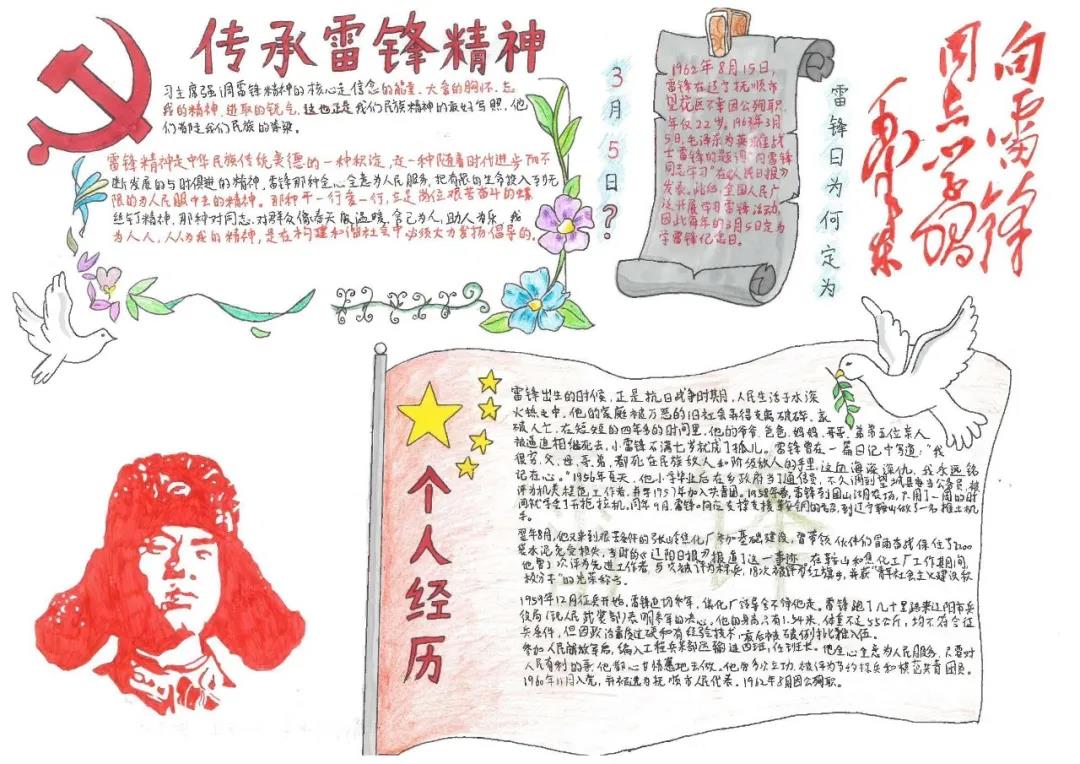 传承雷锋精神
习主席强调雷锋精神的核心是信念的能量、大爱的胸怀、忘
我的精神、进取的锐气，这也正是我们民族精神的最好写照，他
们都是我们民族的脊梁。
雷锋精神是中华民族传统美德的一种积淀，是一种随着时代进步而不
断发展的与时俱进的精神，雷锋那种全心全意为人民服务，把有限的生命投入到无
限的为人民服中去的精神。那种干一行爱一行，立足岗位艰苦奋斗的螺
丝钉精神，那种对同志、对群众像春天般温暖，舍己为人，助人为乐，我
为人人，人人为我的精神，是在构建和谐社会中必须大力发扬倡导的。
3月5日？
1962年8月15日，
雷锋在辽宁抚顺市
望花区不幸因公殉职，
年仅22岁。1963年3月
5日，毛泽东为英雄战
士雷锋的题词"向雷锋
同志学习"在《人民日报》
发表。此后，全国人民广
泛开展学习雷锋活动，
因此每年的3月5日定为
学雷锋纪念日。
雷锋日为何定为
向雷锋
同志学习
毛泽东
个人经历
雷锋出生的时候，正是抗日战争时期，人民生活于水深
火热之中，他的家庭被万恶的旧社会弄得支离破碎，家
破人亡，在短短的四年多的时间里，他的爷爷、爸爸、妈妈、哥哥、弟弟五位亲人
被逼迫相继死去，小雷锋不满七岁就成了孤儿。雷锋曾在一篇日记中写道："我
很穷，父、母、哥、弟，都死在民族敌人和阶级敌人的手里，这血海深仇，我永远铭
记在心。"1956年夏天，他小学毕业后在乡政府当了通信员，不久调到望城县委当公务员，被
评为机关模范工作者，并于1957年加入共青团。1958年春，雷锋到团山湖农场，只用了一周的时
间就学会了开拖拉机。同年9月，雷锋响应支援鞍钢的号召，到辽宁鞍山做了一名推土机
手。
翌年8月，他又来到艰苦条件的弓长岭焦化厂参加基础建设，曾带领伙伴们冒雨奋战保住了7200
袋水泥免受损失，当时的《辽阳日报》报道了这一事迹。在鞍山和焦化工厂工作期间，
他曾3次评为先进工作者，5次被评为标兵，18次被评为红旗手，并获"青年社会主义建设积
极分子"的光荣称号。
1959年12月征兵开始，雷锋迫切参军，焦化厂领导舍不得他走。雷锋跑了几十里路来辽阳市兵
役局(现人民武装部)表明参军的决心。他的身高只有1.54米，体重不足55公斤，均不符合征
兵条件，但因政治素质过硬和有经验技术，最后被破例批准入伍。
参加人民解放军后，编入工程兵某部运输连四班，任班长。他全心全意为人民服务，只要对
人民有利的事，他都心甘情愿地去做。他曾多次立功，被评为节约标兵和模范共青团员。
1960年11月入党，并被选为抚顺市人民代表。1962年8月因公殉职。